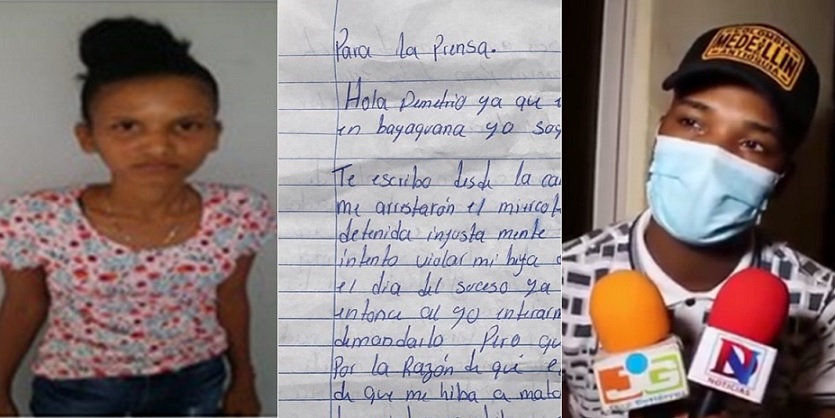 Para la Prensa.
Hola Demetrio ya que
en bayaguana yo soy
Te escribo desde la
me arrestarón el
detenida injusta mente
intento violar mi hija
el dia del suceso ya
entonce al yo
demandarlo Pero
Por la Razón de que
de que me hiba a mata
COLOMBIA
MEDELLIN
ANTIOQUIA
N
NOTICIAS